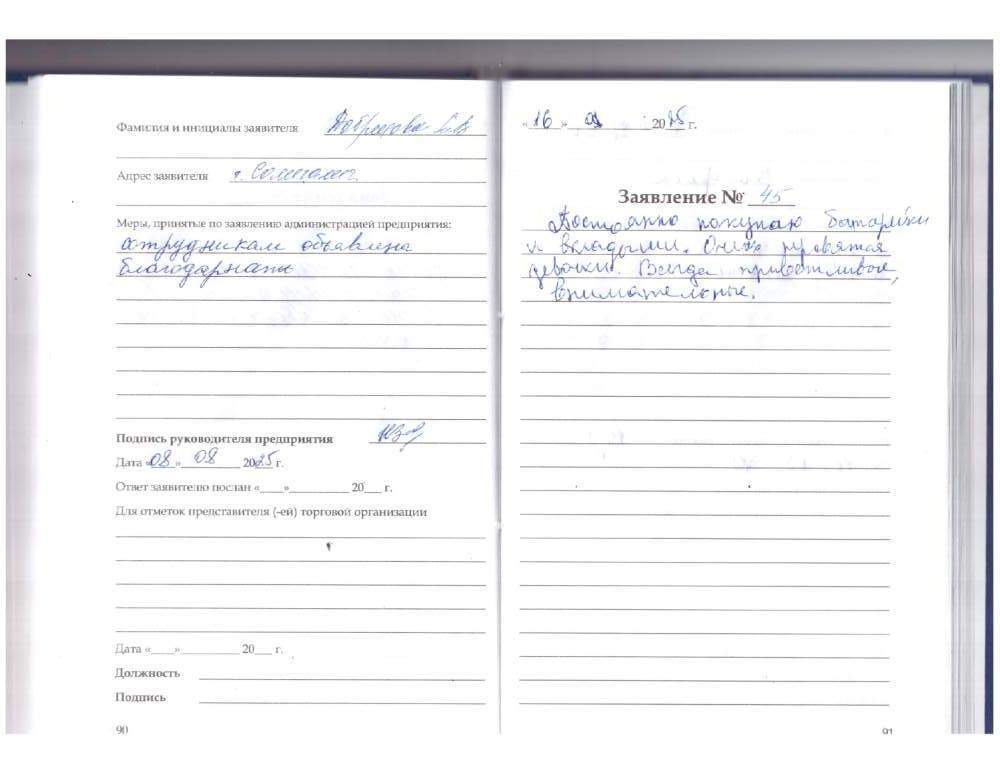 Фамилия и инициалы заявителя
Адрес заявителя г.
Меры, принятые по заявлению администрацией предприятия:
сотрудникам объявлена
благодарность
Подпись руководителя предприятия
Дата «08» 08 2025 г.
Ответ заявителю послан «____»__________ 20___ г.
Для отметок представителя (-ей) торговой организации
Дата «____»__________ 20___ г.
Должность
Подпись
90
«16» 2025 г.
Заявление № 45
Постоянно покупаю батарейки
и вкладыши. Очень нравятся
девочки. Всегда приветливые,
внимательные.
91